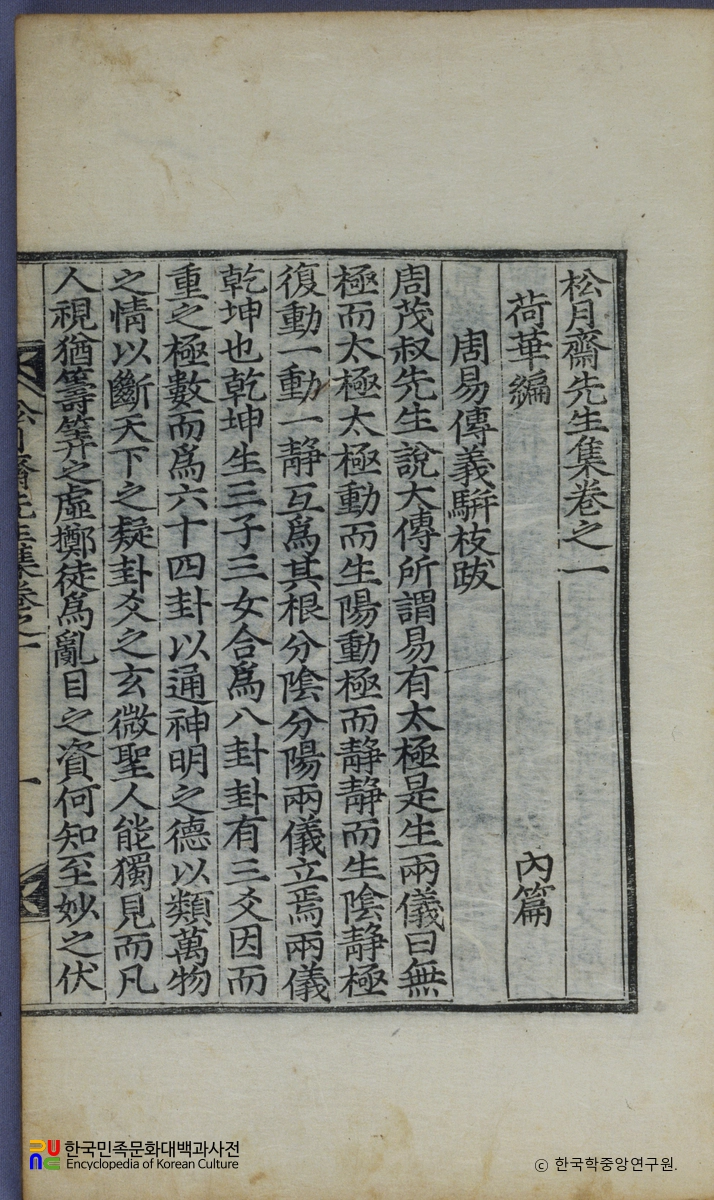 松月齋先生集卷之一
荷華編 內篇
周易傳義騈枝跋
周茂叔先生說大傳所謂易有太極是生兩儀曰無
極而太極太極動而生陽動極而靜靜而生陰靜極
復動一動一靜互爲其根分陰分陽兩儀立焉兩儀
乾坤也乾坤生三子三女合爲八卦卦有三爻因而
重之極數而爲六十四卦以通神明之德以類萬物
之情以斷天下之疑卦爻之玄微聖人能獨見而凡
人視猶籌筭之虛擲徒爲亂目之資何知至妙之伏
松月齋先生集卷之一 一
한국민족문화대백과사전
Encyclopedia of Korean Culture
ⓒ 한국학중앙연구원.